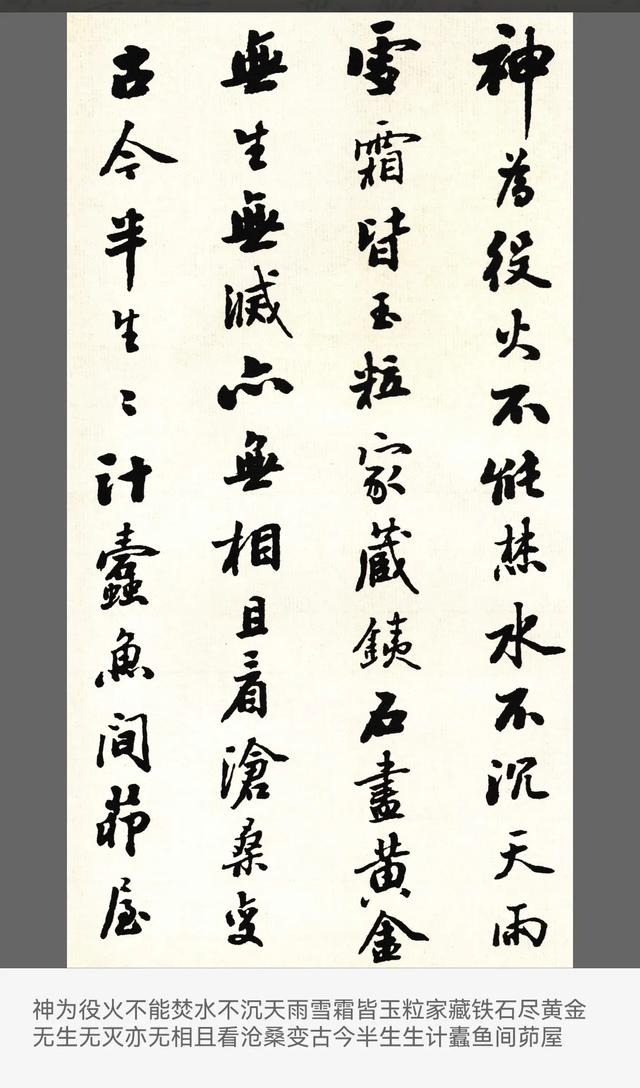 神為役火不能焚水不沉天雨
雪霜皆玉粒家藏鐵石盡黄金
無生無滅亦無相且看滄桑变
古今半生〻計蠹魚間茆屋
神为役火不能焚水不沉天雨雪霜皆玉粒家藏铁石尽黄金
无生无灭亦无相且看沧桑变古今半生生计蠹鱼间茆屋